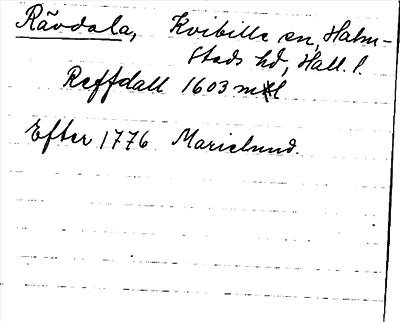 Rävdala, Kvibille sn, Halm-
stads hd, Hall. l.
Reffdall 1603 mtl
Efter 1776 Marielund.